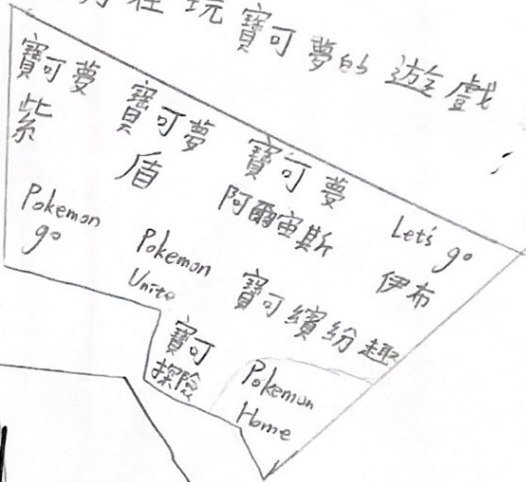 在玩寶可夢的遊戲:
寶可夢
紫
寶可夢
盾
寶可夢
阿爾宙斯
Let's go
伊布
Pokemon
go
Pokemon
Unite
寶可繽紛趣
寶可
探險
Pokemon
Home